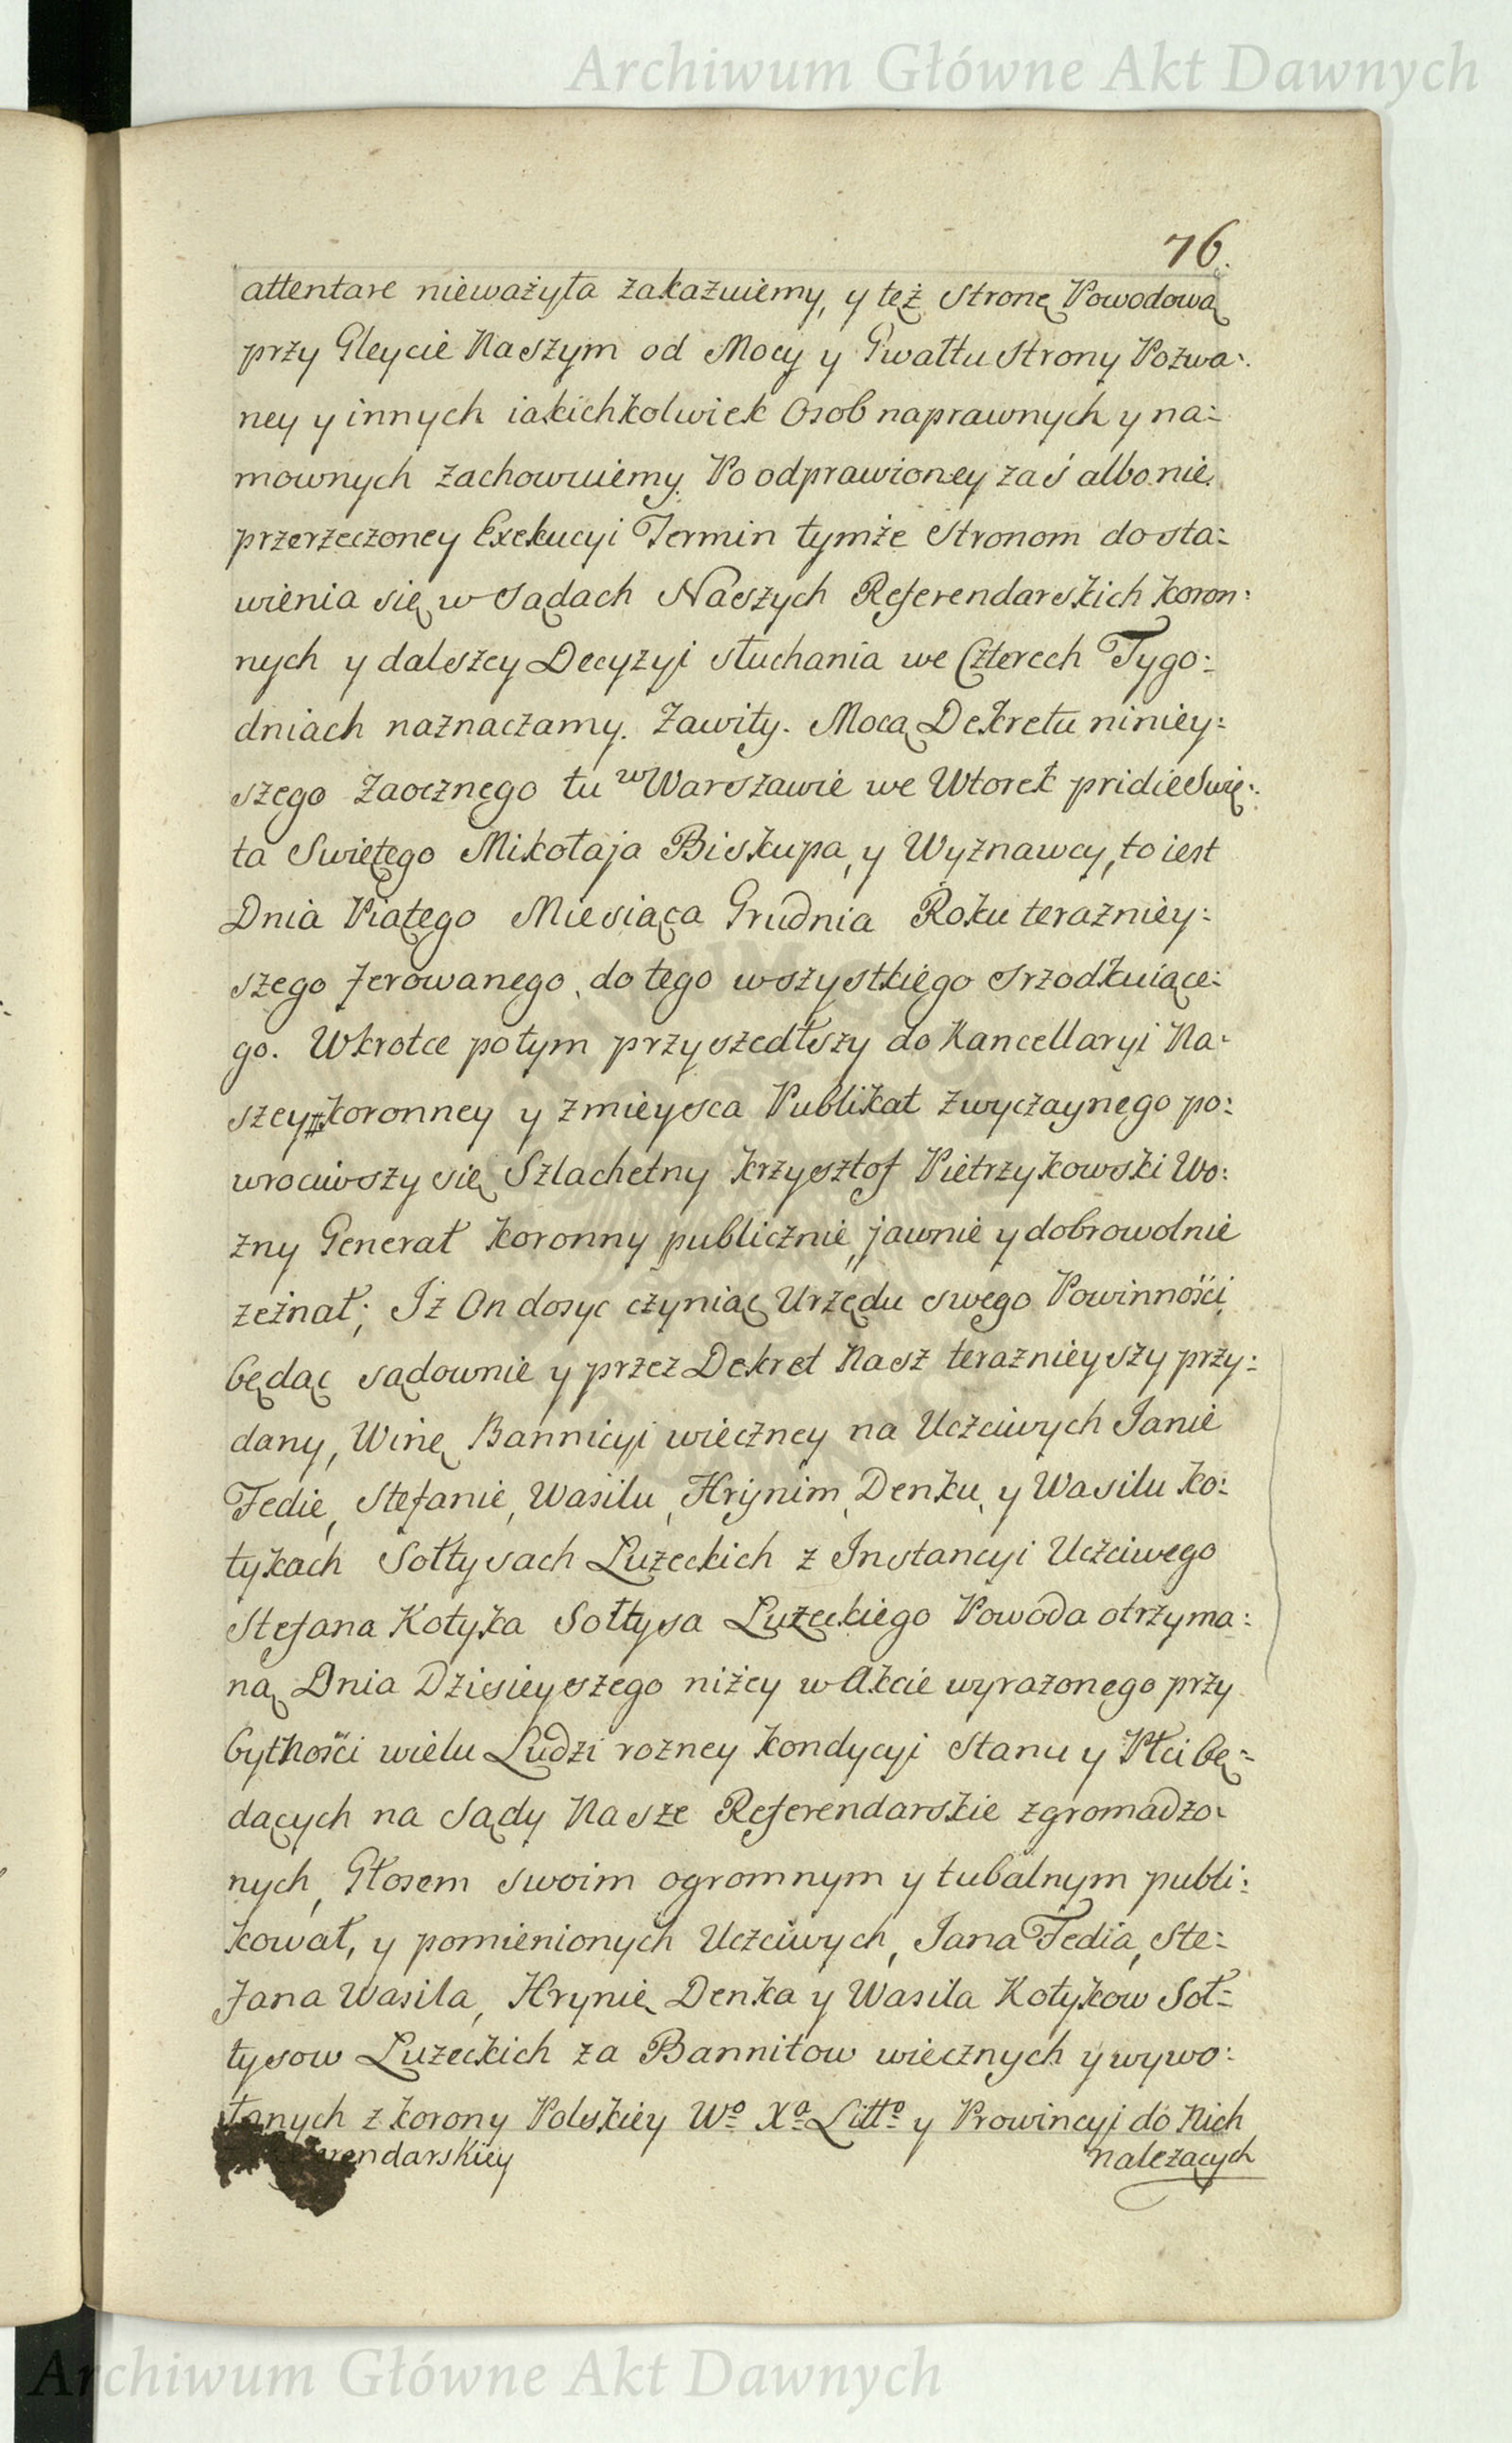 Archiwum Główne Akt Dawnych
76.
attentare nieważyła zakazuiemy, y też Stronę Powodową
przy Gleycie Naszym od Mocy y Gwałtu Strony Pozwa:
ney y innych iakichkolwiek Osob naprawnych y na:
mownych zachowuiemy. Po odprawioney zaś albo nie
przerzeczoney Exekucyi Termin tymże Stronom do sta:
wienia się w Sądach Naszych Referendarskich Koron:
nych y dalszey Decyzyi słuchania we Czterech Tygo:
dniach naznaczamy. Zawity. Mocą Dekretu niniey:
szego Zaocznego tu w Warszawie we Wtorek pridie Swię:
ta Swiętego Mikołaja Biskupa, y Wyznawcy, to iest
Dnia Piątego Miesiąca Grudnia Roku terazniey:
szego ferowanego, do tego wszystkiego srzodkuiące:
go. Wkrotce potym przyszedłszy do Kancellaryi Na:
szey # Koronney y z mieysca Publikat zwyczaynego po:
wrociwszy się Szlachetny Krzysztof Pietrzykowski Wo:
zny Generał Koronny publicznie, jawnie y dobrowolnie
zeżnał; Iż On dosyc czyniąc Urzędu swego Powinności
będąc sądownie y przez Dekret Nasz teraznieyszy przy:
dany, Winę Bannicyi wieczney na Uczciwych Janie
Fedie, Stefanie, Wasilu, Hrynim, Denku, y Wasilu Ko:
tykach Sołtysach Luzeckich z Instancyi Uczciwego
Stefana Kotyka Sołtysa Luzeckiego Powoda otrzyma:
ną Dnia Dzisieyszego niżey w Akcie wyrażonego przy
bytności wielu Ludzi rozney Kondycyi Stanu y Płci bę:
dących na Sądy Nasze Referendarskie zgromadzo:
nych, Głosem swoim ogromnym y tubalnym publi:
kował, y pomienionych Uczciwych, Jana Fedia, Ste:
fana Wasila, Hrynie Denka y Wasila Kotykow Soł:
tysow Luzeckich za Bannitow wiecznych y wywo:
łanych z Korony Polskiey Wo Xa Litto y Prowincyi do Nich
należących
Archiwum Główne Akt Dawnych